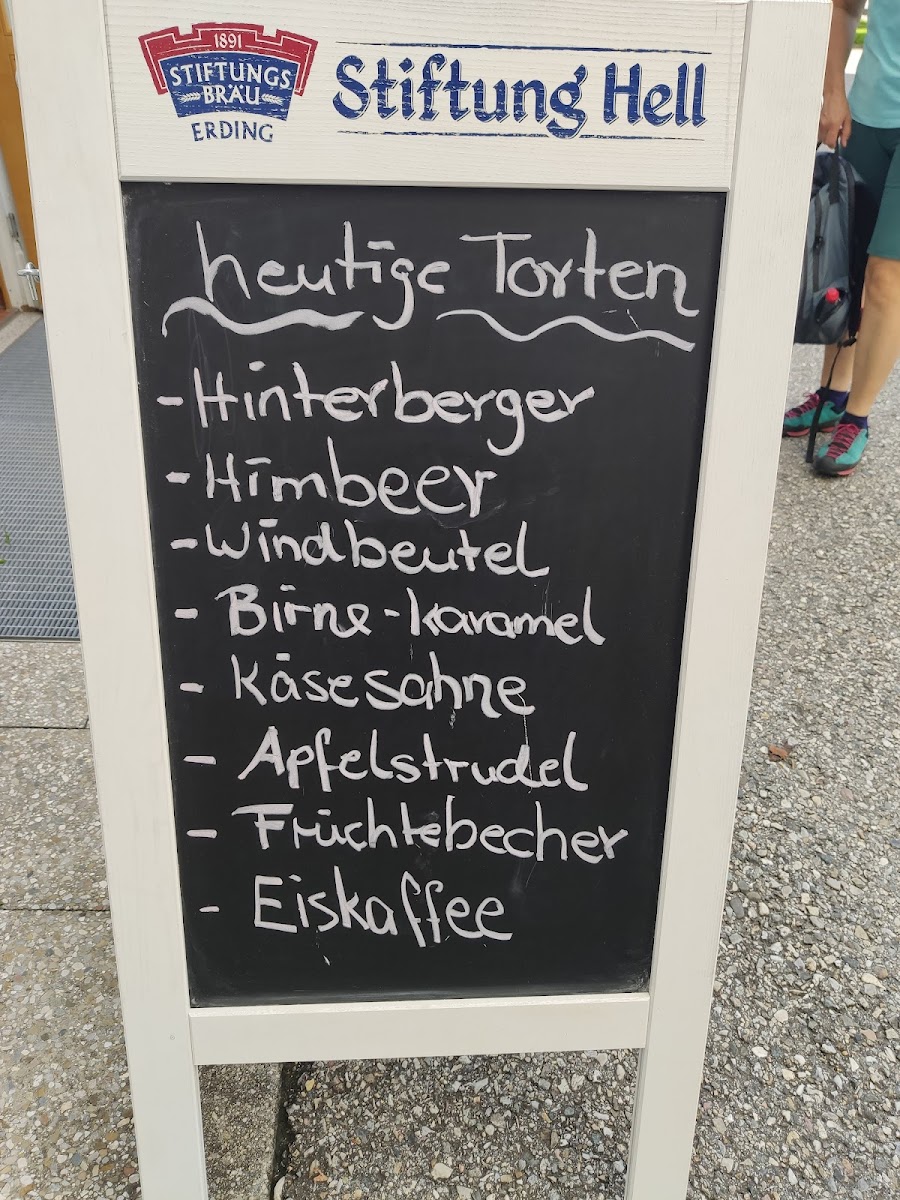 1891
STIFTUNGS
BRÄU
ERDING
Stiftung Hell
heutige Torten
- Hinterberger
- Himbeer
- Windbeutel
- Birne-karamel
- Käsesahne
- Apfelstrudel
- Früchtebecher
- Eiskaffee